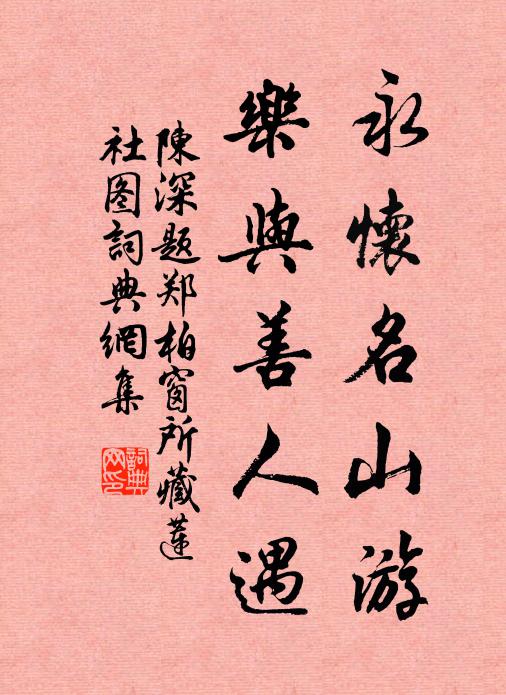 永懷名山游
樂與善人遇
陳深题郑柏窗所藏蓮
社图詞典網集
詞典
网印